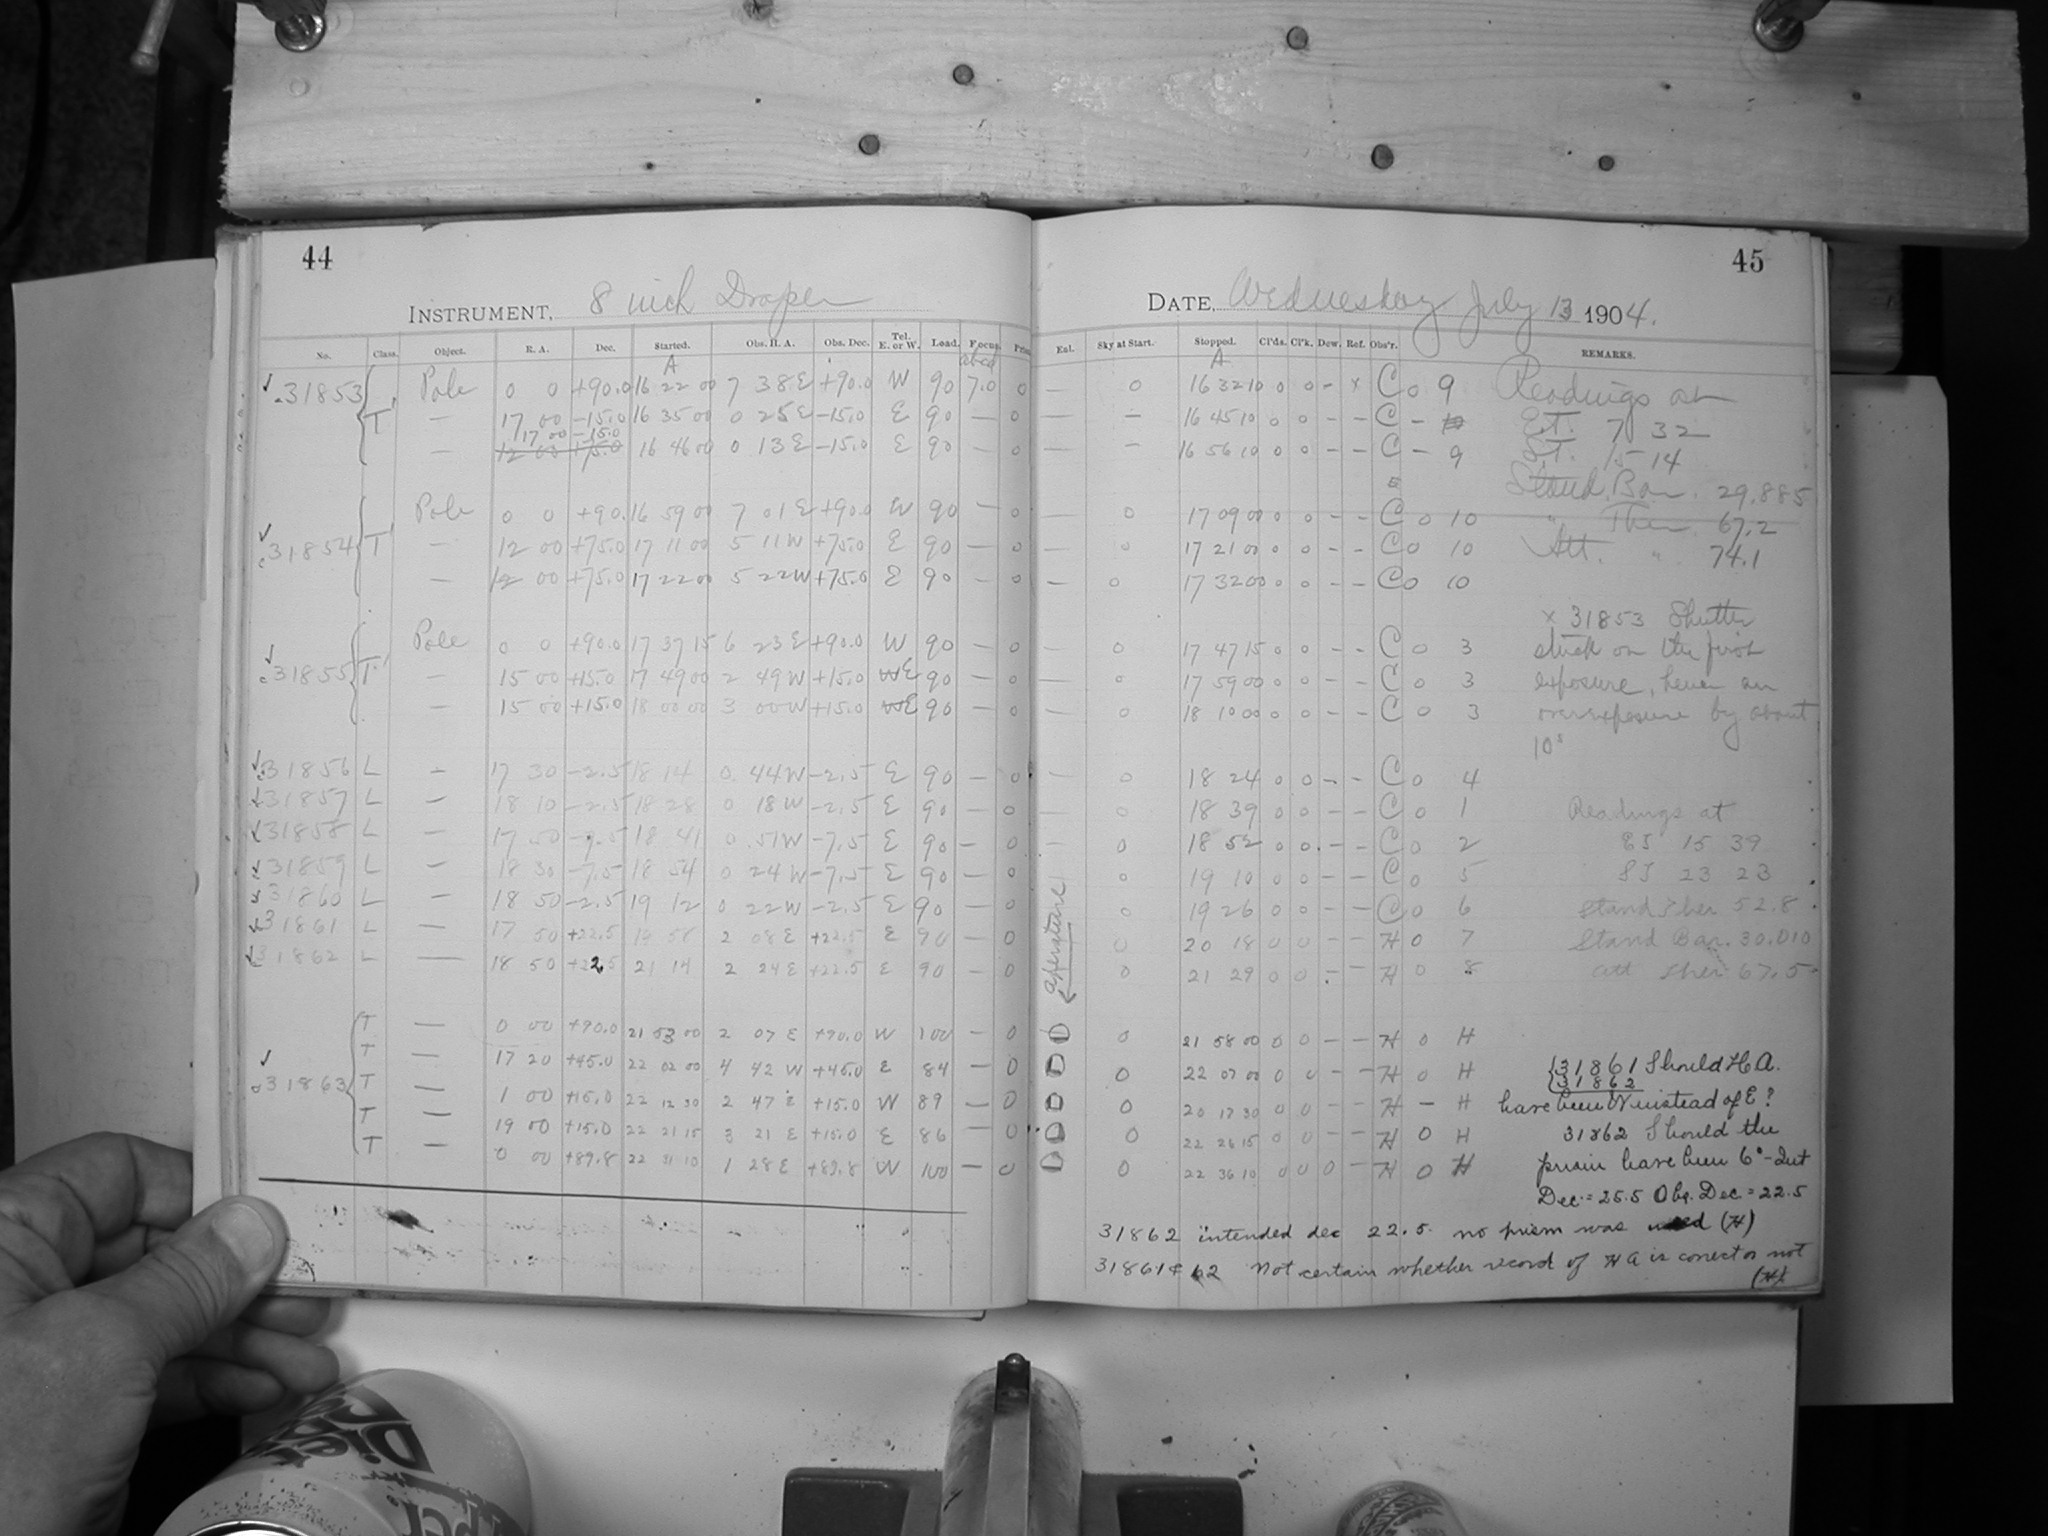 44
INSTRUMENT, 8 inch Draper
No. Class. Object. R. A. Dec. Started. Obs. H. A. Obs. Dec. Tel. E. or W. Load. Focus.
A
31853 T Pole 0 0 +90.0 16 22 00 7 38 E +90.0 W 90 7.0 0
— 17 00 -15.0 16 35 00 0 25 E -15.0 E 90 — 0
17 00 -15.0
— 12 00 +75.0 16 46 00 0 13 E -15.0 E 90 — 0
Pole 0 0 +90. 16 59 00 7 01 E +90.0 W 90 — 0
31854 T — 12 00 +75.0 17 11 00 5 11 W +75.0 E 90 — 0
— 12 00 +75.0 17 22 00 5 22 W +75.0 E 90 — 0
Pole 0 0 +90.0 17 37 15 6 23 E +90.0 W 90 — 0
31855 T — 15 00 +15.0 17 49 00 2 49 W +15.0 E 90 — 0
— 15 00 +15.0 18 00 00 3 00 W +15.0 E 90 — 0
31856 L — 17 30 -2.5 18 14 0 44 W -2.5 E 90 — 0
31857 L — 18 10 -2.5 18 28 0 18 W -2.5 E 90 — 0
31858 L — 17 50 -7.5 18 41 0 51 W -7.5 E 90 — 0
31859 L — 18 30 -7.5 18 54 0 24 W -7.5 E 90 — 0
31860 L — 18 50 -2.5 19 12 0 22 W -2.5 E 90 — 0
31861 L — 17 50 +22.5 19 58 2 08 E +22.5 E 90 — 0
31862 L — 18 50 +22.5 21 14 2 24 E +22.5 E 90 — 0
T — 0 00 +90.0 21 53 00 2 07 E +90.0 W 100 — 0
T — 17 20 +45.0 22 02 00 4 42 W +45.0 E 84 — 0
31863 T — 1 00 +15.0 22 12 30 2 47 E +15.0 W 89 — 0
T — 19 00 +15.0 22 21 15 3 21 E +15.0 E 86 — 0
T — 0 00 +89.8 22 31 10 1 28 E +89.8 W 100 — 0
45
DATE, Wednesday July 13 1904.
Enl. Sky at Start. Stopped. Cl'ds. Cl'k. Dew. Ref. Obs'r. REMARKS.
A
— 0 16 32 10 0 0 - x C 0 9
— 16 45 10 0 0 - - C -
— 16 56 10 0 0 - - C - 9
— 0 17 09 00 0 0 - - C 0 10
— 0 17 21 00 0 0 - - C 0 10
— 0 17 32 00 0 0 - - C 0 10
— 0 17 47 15 0 0 - - C 0 3
— 0 17 59 00 0 0 - - C 0 3
— 0 18 10 00 0 0 - - C 0 3
— 0 18 24 0 0 - - C 0 4
— 0 18 39 0 0 - - C 0 1
— 0 18 52 0 0 - - C 0 2
0 19 10 0 0 - - C 0 5
0 19 26 0 0 - - C 0 6
0 20 18 0 0 - - H 0 7
0 21 29 0 0 - - H 0 8
aperture
0 0 21 58 00 0 0 - - H 0 H
0 0 22 07 00 0 0 - - H 0 H
0 0 20 17 30 0 0 - - H - H
0 0 22 26 15 0 0 - - H 0 H
0 0 22 36 10 0 0 0 - H 0 H
Readings at
E.T. 7 32
S.T. 15 14
Stand. Bar. 29.885
" Ther. 67.2
Att. " 74.1
x 31853 Shutter
stuck on the first
exposure, hence an
overexposure by about
10s
Readings at
ET 15 39
ST 23 23
Stand Ther 52.8
Stand Bar. 30.010
att ther 67.5
31861 Should H.A.
31862
have been W instead of E?
31862 Should the
prism have been 6°-Out
Dec. = 25.5 Obs. Dec = 22.5
31862 intended dec 22.5. no prism was used (H)
31861 & 62 Not certain whether record of HA is correct or not
(H)
Diet